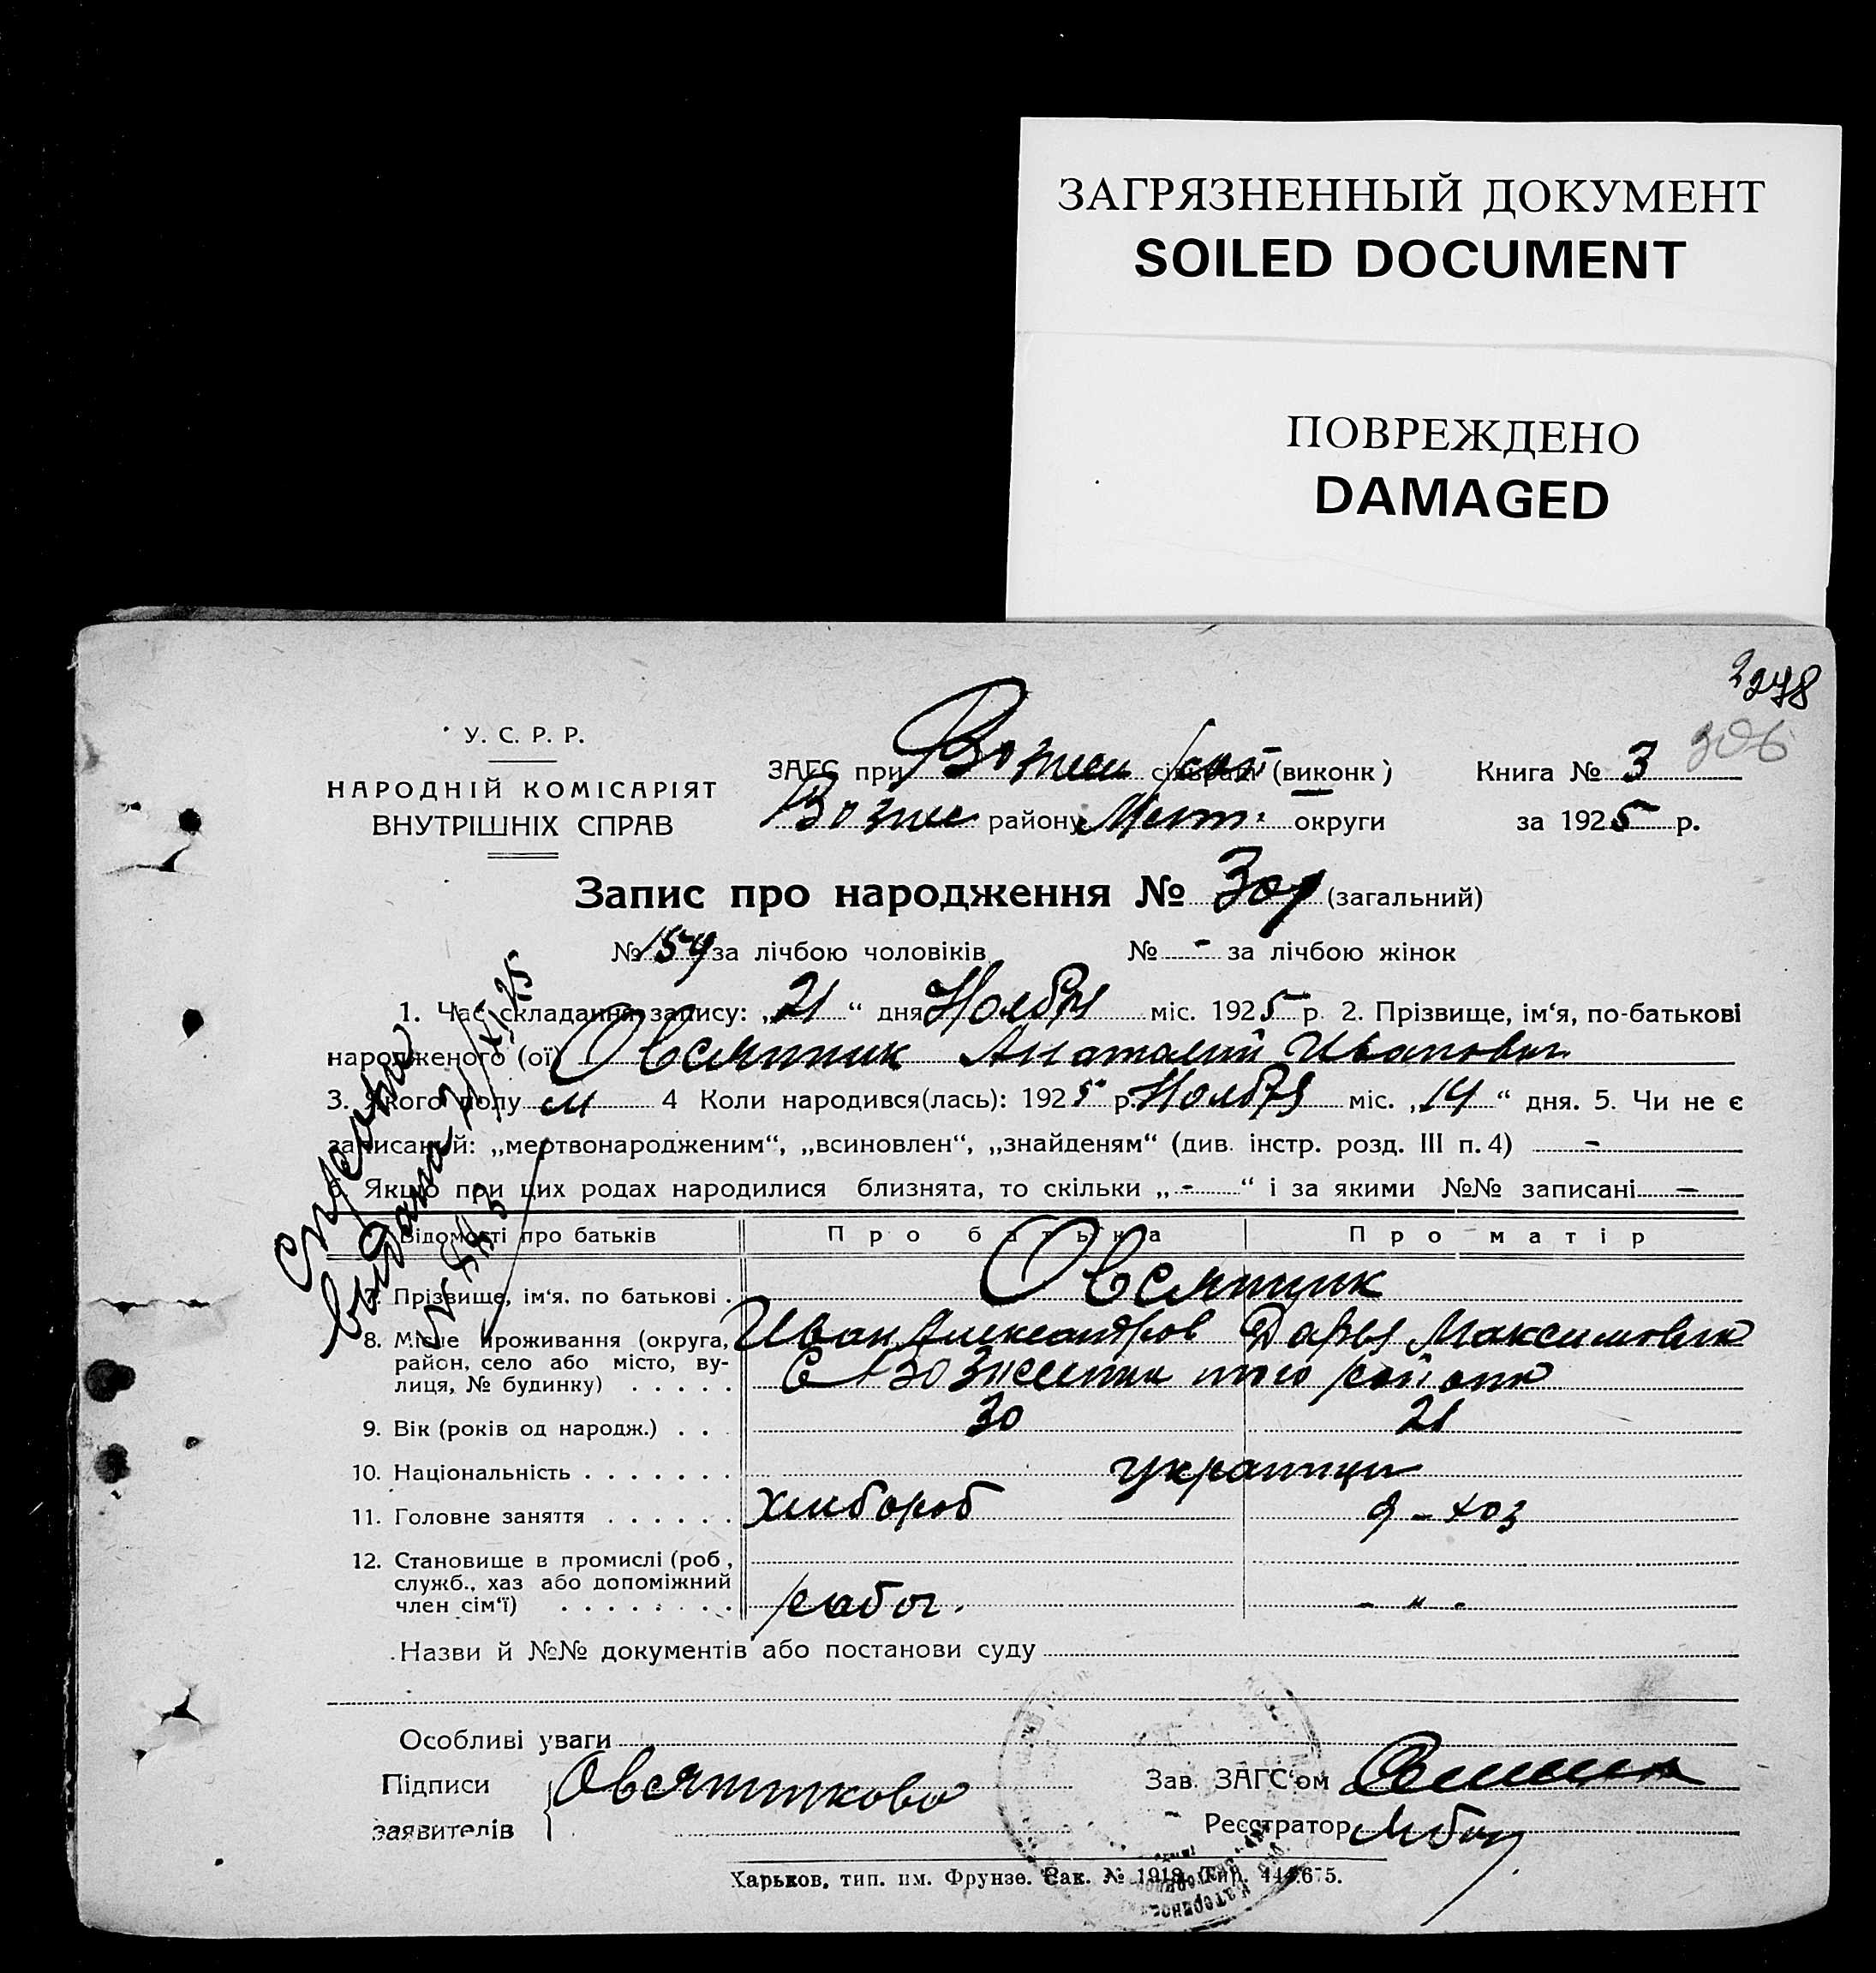 ЗАГРЯЗНЕННЫЙ ДОКУМЕНТ
SOILED DOCUMENT
ПОВРЕЖДЕНО
DAMAGED
306
У. С. Р. Р.
НАРОДНІЙ КОМІСАРІЯТ
ВНУТРІШНІХ СПРАВ
ЗАГС при сільраді (виконк)
району округи
Книга № 3
за 1925 р.
Запис про народження № (загальний)
№ 159 за лічбою чоловіків № - за лічбою жінок
1. Час складання запису: „21“ дня Ноября міс. 1925 р 2. Прізвище, ім‘я, по-батькові
народженого (ої) Овсянник Анатолий Иванович
3. Якого полу м 4 Коли народився(лась): 1925 р. Ноября міс. „14“ дня. 5. Чи не є
записаний: „мертвонародженим“, „всиновлен“, „знайденям“ (див. інстр. розд. III п. 4) -
6. Якщо при цих родах народилися близнята, то скільки „-“ і за якими №№ записані -
Відомості про батьків Про батька Про матір
7. Прізвище, ім‘я. по батькові . Овсянник
Иван Александров Дарья Максимовна
8. Місце проживання (округа,
район, село або місто, ву-
лиця, № будинку) . . . . .
9. Вік (років од народж.) . . . 30 21
10. Національність . . . . . . . украинцы
11. Головне заняття . . . . . . хлибороб д-хоз
12. Становище в промислі (роб,
служб., хаз або допоміжний
член сім‘ї) . . . . . . . . рабоч. - " -
Назви й №№ документів або постанови суду
Особливі уваги
Підписи
заявителів
Зав. ЗАГС‘ом
Реєстратор
Харьков, тип. им. Фрунзе. Зак. № 1918.